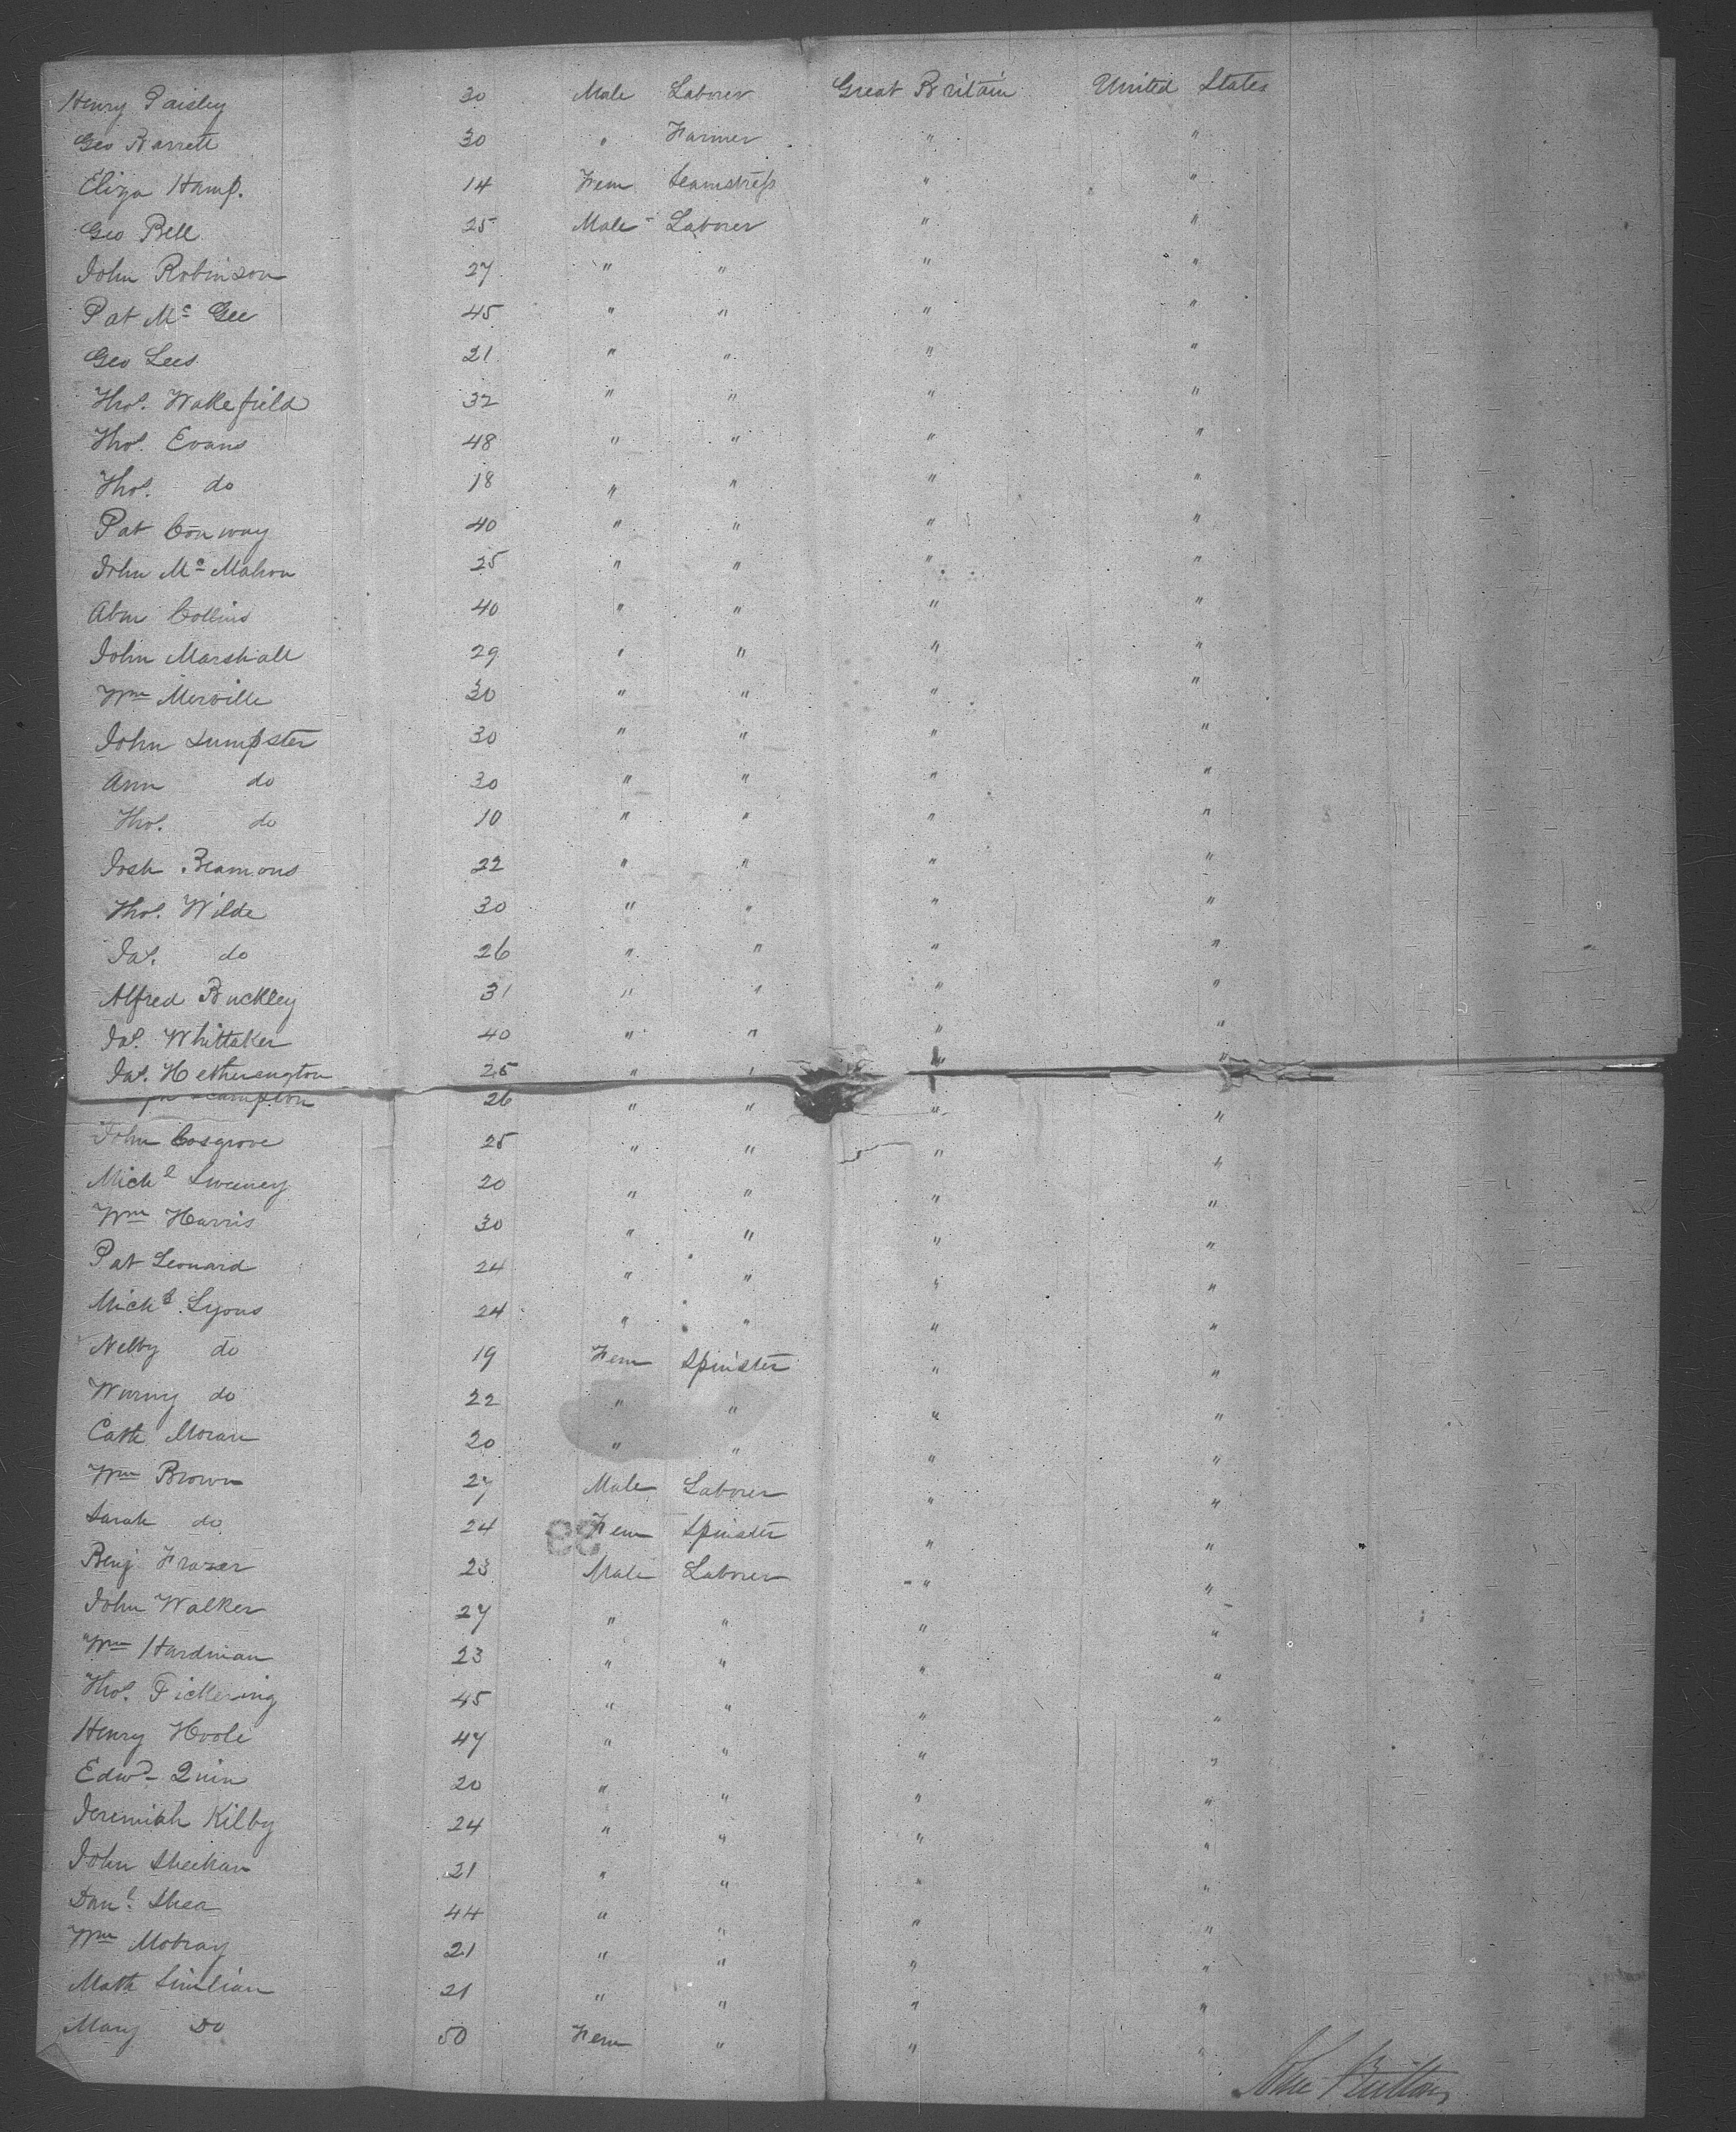 Henry Paisley 30 Male Laborer Great Britain United States
Geo Barrett 30 " Farmer " "
Eliza Hamp. 14 Fem Seamstress " "
Geo Bell 25 Male Laborer " "
John Robinson 27 " " " "
Pat Mc Gee 45 " " " "
Geo Lees 21 " " " "
Thos. Wakefield 32 " " " "
Thos. Evans 48 " " " "
Thos. do 18 " " " "
Pat Conway 40 " " " "
John Mc Mahon 25 " " " "
Abm Collins 40 " " " "
John Marshall 29 " " " "
Wm Merville 30 " " " "
John Sumpster 30 " " " "
Ann do 30 " " " "
Thos. do 10 " " " "
Josh Beamons 22 " " " "
Thos. Wilde 30 " " " "
Jas. do 26 " " " "
Alfred Buckley 31 " " " "
Jas. Whittaker 40 " " " "
Jas. Hetherington 25 " " " "
26 " " " "
John Cosgrove 25 " " " "
Michl Sweeney 20 " " " "
Wm Harris 30 " " " "
Pat Leonard 24 " " " "
Michl Lyons 24 " " " "
Nelby do 19 Fem Spinster " "
do 22 " " " "
Cath Moran 20 " " " "
Wm Brown 27 Male Laborer " "
Sarah do 24 Fem Spinster " "
Benj Frazer 23 Male Laborer " "
John Walker 27 " " " "
Wm Hardman 23 " " " "
Thos. Pickering 45 " " " "
Henry Hoole 47 " " " "
Edwd Quin 20 " " " "
Jeremiah Kilby 24 " " " "
John Sheehan 21 " " " "
Danl Shea 44 " " " "
Wm Mobray 21 " " " "
Math 21 " " " "
Mary Do 50 Fem " " "
John Britton